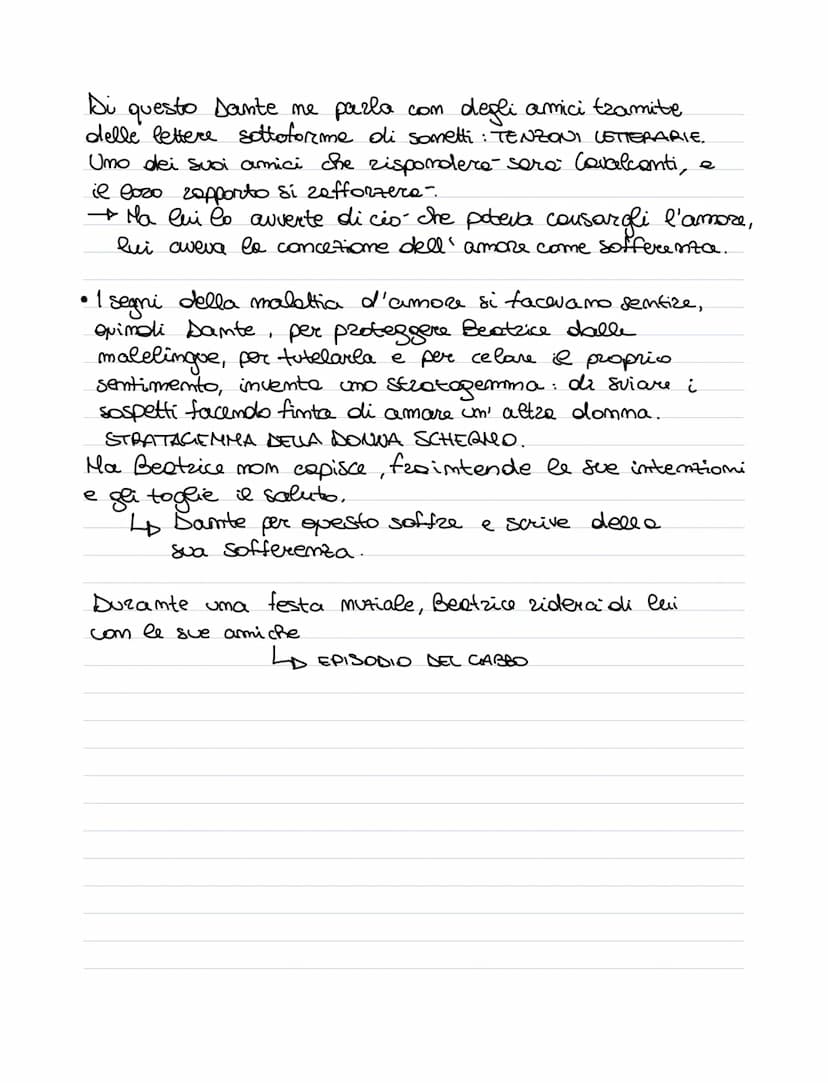 Di questo Dante ne parla con degli amici tramite
delle lettere sottoforma di sonetti : TENZONI LETTERARIE.
Uno dei suoi amici che risponderà sarà Cavalcanti, e
il loro rapporto si rafforzerà.
→ Ma lui lo avverte di ciò che poteva causargli l'amore,
lui aveva la concezione dell' amore come sofferenza.
• I segni della malattia d'amore si facevano sentire,
quindi Dante, per proteggere Beatrice dalle
malelingue, per tutelarla e per celare il proprio
sentimento, inventa uno stratagemma : di sviare i
sospetti facendo finta di amare un' altra donna.
STRATAGEMMA DELLA DONNA SCHERMO.
Ma Beatrice non capisce, fraintende le sue intenzioni
e gli toglie il saluto.
↳ Dante per questo soffre e scrive della
sua sofferenza.
Durante una festa nuziale, Beatrice riderà di lui
con le sue amiche
↳ EPISODIO DEL GABBO